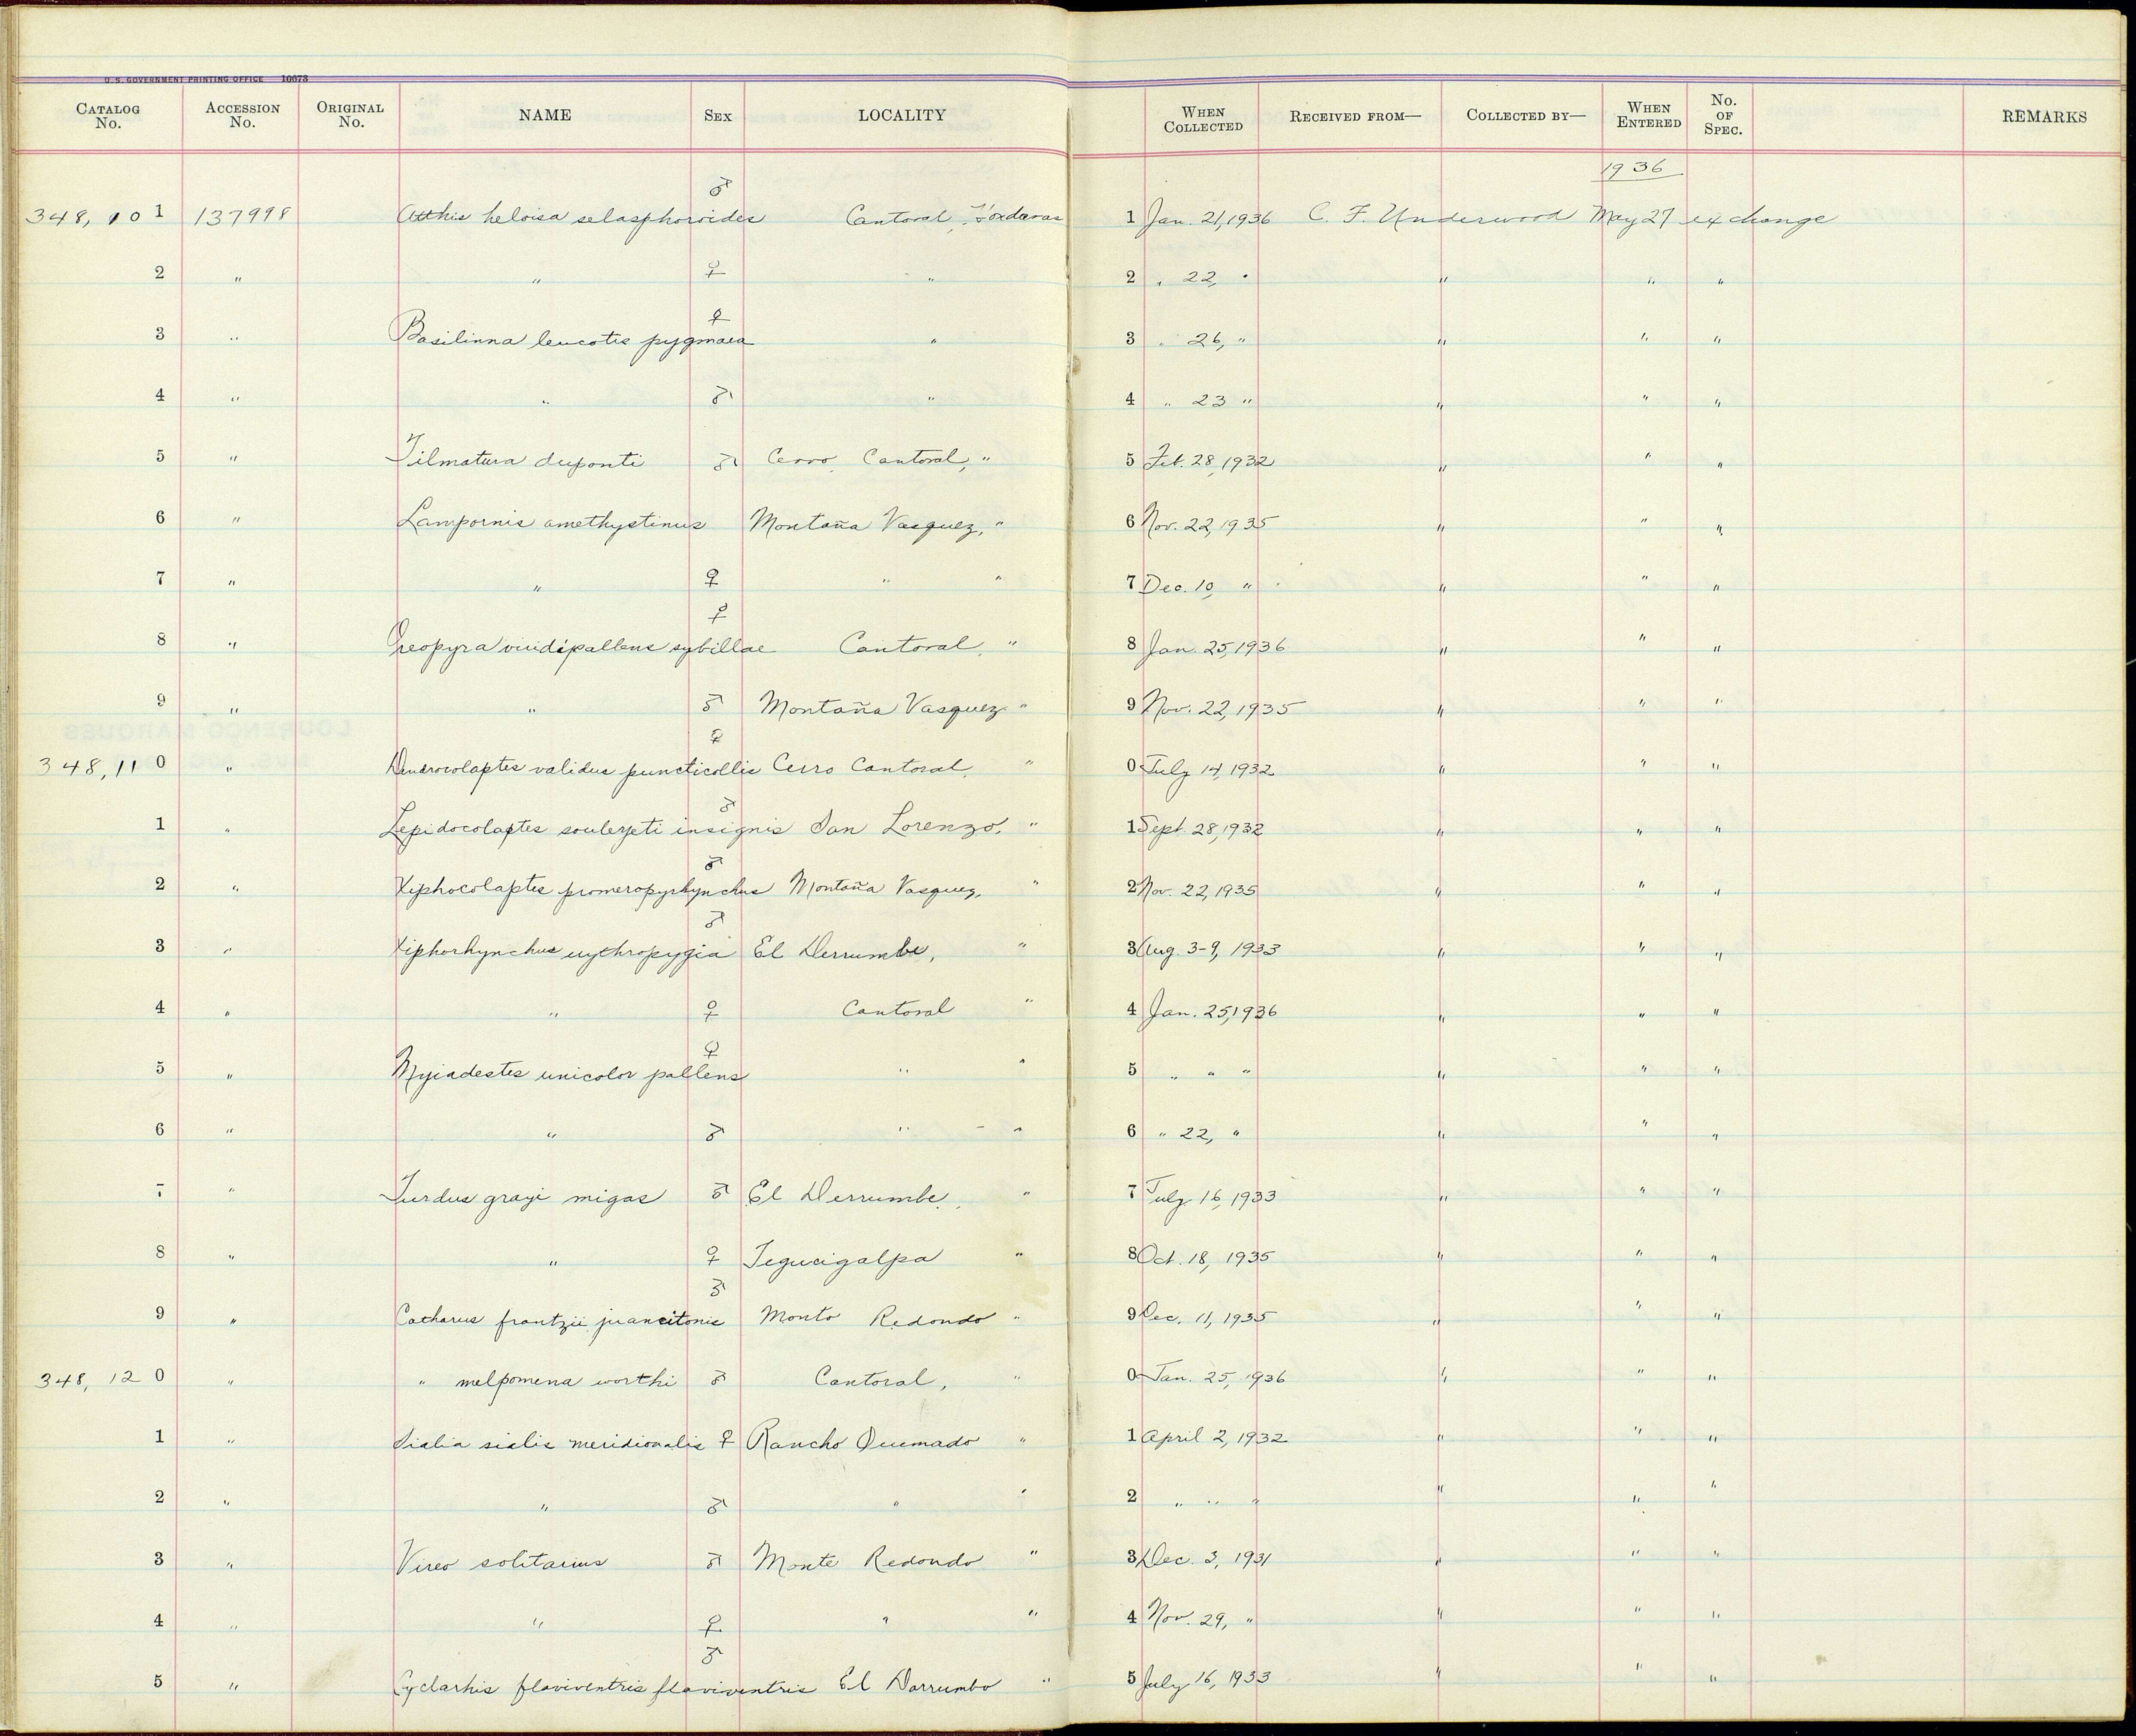 U. S. GOVERNMENT PRINTING OFFICE 10673
CATALOG No. ACCESSION No. ORIGINAL No. NAME SEX LOCALITY WHEN COLLECTED RECEIVED FROM— COLLECTED BY— WHEN ENTERED No. OF SPEC. REMARKS
1936
348,10 1 137998 Atthis heloisa selasphoroides ♂ Cantoral, Honduras 1 Jan. 21, 1936 C. F. Underwood May 27 exchange
2 " " ♀ " 2 " 22, " " " "
3 " Basilinna leucotis pygmaea ♀ " 3 " 26, " " " "
4 " " ♂ " 4 " 23 " " " "
5 " Tilmatura duponti ♂ Cerro Cantoral, " 5 Feb. 28, 1932 " " "
6 " Lampornis amethystinus Montaña Vasquez, " 6 Nov. 22, 1935 " " "
7 " " ♀ " " 7 Dec. 10, " " " "
8 " Oreopyra viridipallens sybillae ♀ Cantoral, " 8 Jan. 25, 1936 " " "
9 " " ♂ Montaña Vasquez " 9 Nov. 22, 1935 " " "
348,11 0 " Dendrocolaptes validus puncticollis ♀ Cerro Cantoral, " 0 July 14, 1932 " " "
1 " Lepidocolaptes souleyeti insignis ♂ San Lorenzo, " 1 Sept. 28, 1932 " " "
2 " Xiphocolaptes promeropyrhynchus ♂ Montaña Vasquez, " 2 Nov. 22, 1935 " " "
3 " Xiphorhynchus erythropygia ♂ El Derrumbe, " 3 Aug. 3-9, 1933 " " "
4 " " ♀ Cantoral " 4 Jan. 25, 1936 " " "
5 " Myiadestes unicolor pallens ♀ " " 5 " " " " " "
6 " " ♂ " " 6 " 22, " " " "
7 " Turdus grayi migas ♂ El Derrumbe, " 7 July 16, 1933 " " "
8 " " ♀ Tegucigalpa " 8 Oct. 18, 1935 " " "
9 " Catharus frantzii juancitonis ♂ Monto Redondo " 9 Dec. 11, 1935 " " "
348,12 0 " " melpomena worthi ♂ Cantoral, " 0 Jan. 25, 1936 " " "
1 " Sialia sialis meridionalis ♀ Rancho Quemado " 1 April 2, 1932 " " "
2 " " ♂ " " 2 " " " " " "
3 " Vireo solitarius ♂ Monte Redondo " 3 Dec. 3, 1931 " " "
4 " " ♀ " " 4 Nov. 29, " " " "
5 " Cyclarhis flaviventris flaviventris ♂ El Darrumbo " 5 July 16, 1933 " " "